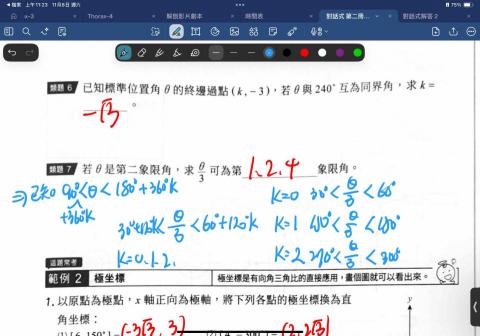 檔案 上午11:23 11月8日 週六
75%
x-3 Thorax-4 解題影片劇本 時間表 對話式 第二冊... 對話式解答 2
類題 6 已知標準位置角 θ 的終邊過點 (k, −3)，若 θ 與 240° 互為同界角，求 k =
−√3 。
類題 7 若 θ 是第二象限角，求 θ/3 可為第 1.2.4 象限角。
⇒已知 90°<θ<180°+360°k
+360°k
30°+120°k<θ/3<60°+120°k
k=0.1.2.
k=0 30°<θ/3<60°
k=1 150°<θ/3<180°
k=2 270°<θ/3<300°
這題常考
範例 2 極坐標 極坐標是有向角三角比的直接應用，畫個圖就可以看出來。
1. 以原點為極點，x 軸正向為極軸，將下列各點的極坐標換為直
角坐標：
y
(−3√3, 3)